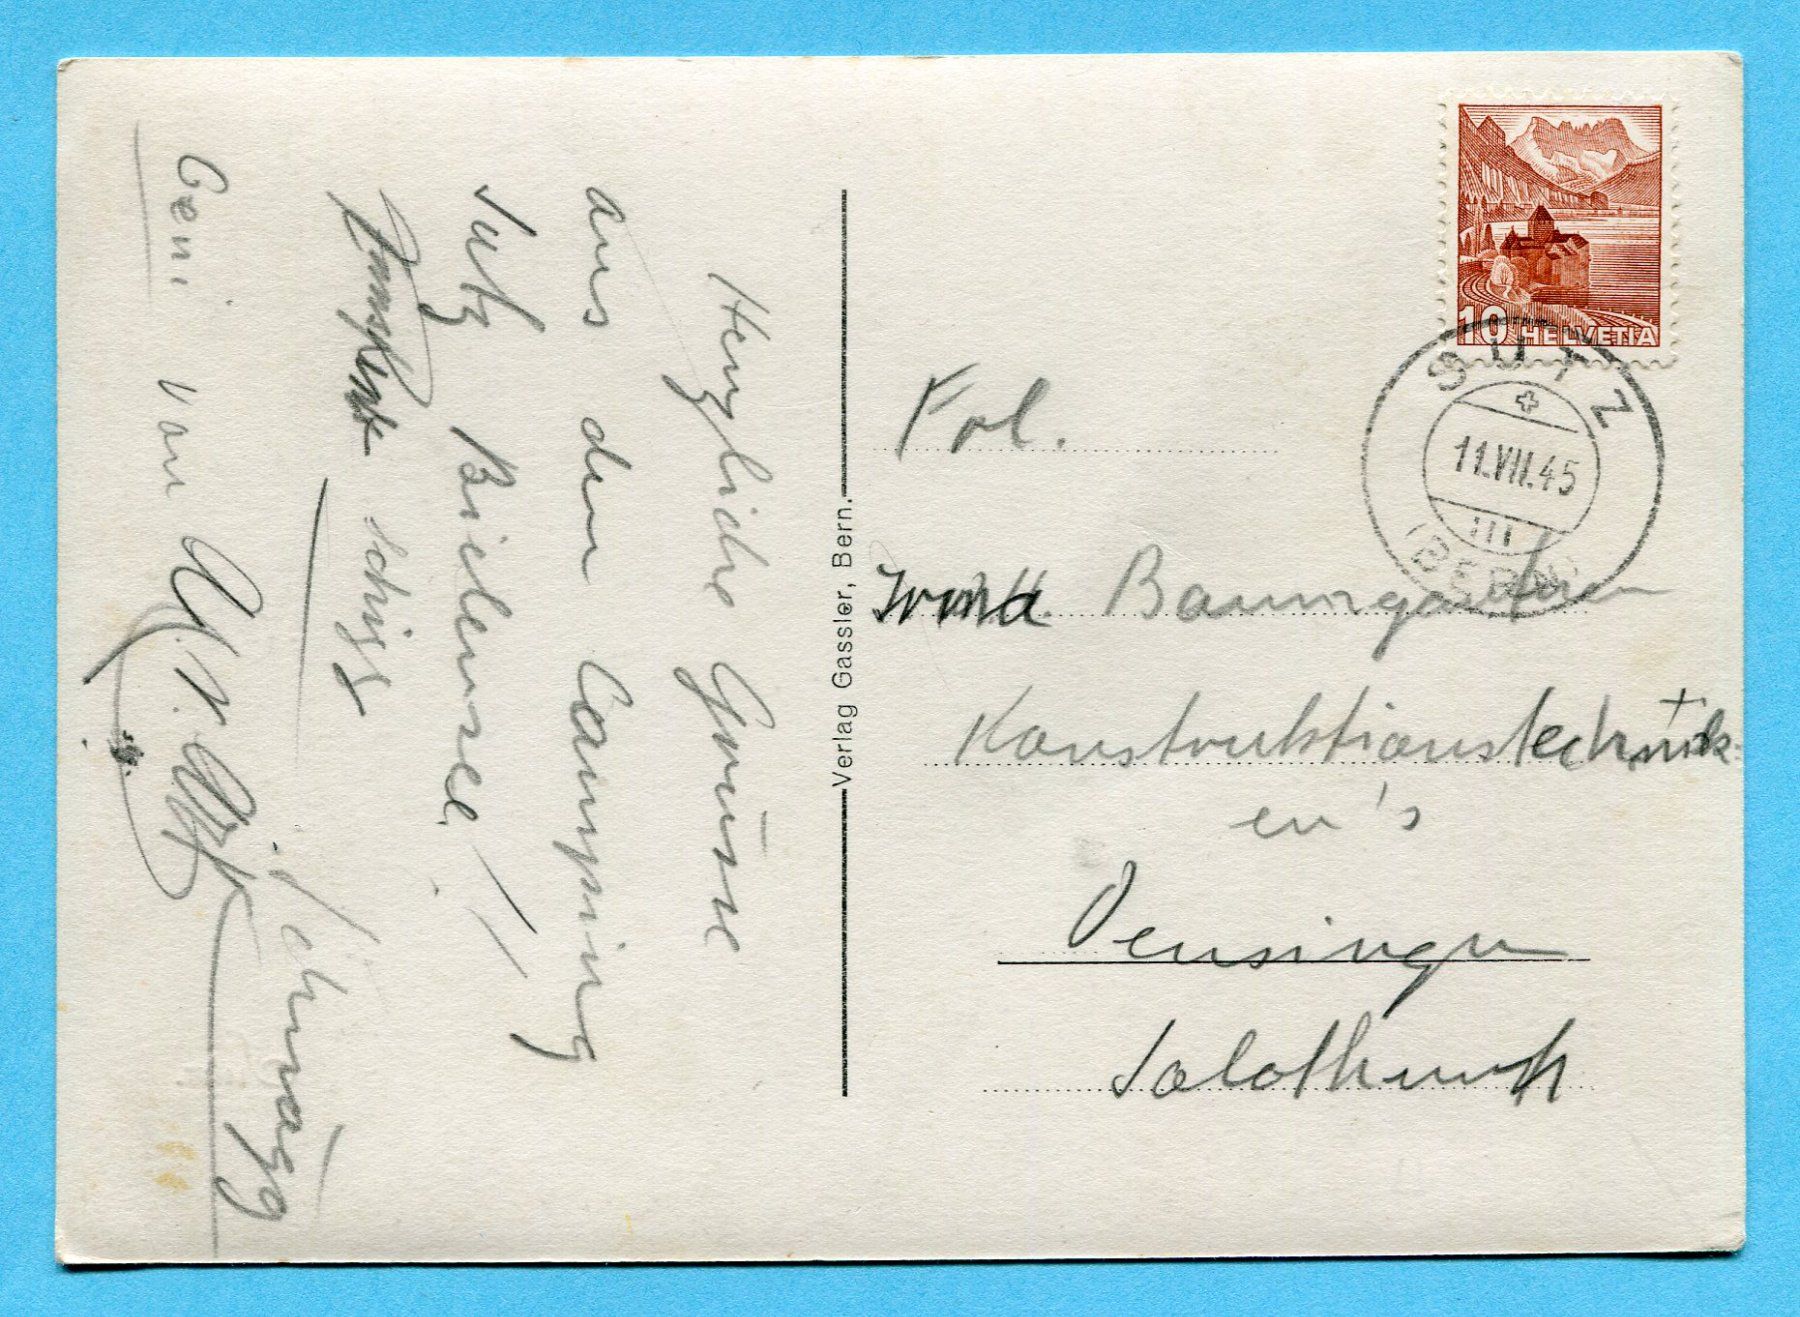 Herzliche Grüsse
aus dem Camping
Sutz Bielersee!
schigg
Geni von
Schnägg
Verlag Gassler, Bern.
10 HELVETIA
SUTZ
11.VII.45
III
(BERN)
Frl.
Irma Baumgartner
Konstruktionstechnik-
er's
Oensingen
Solothurn